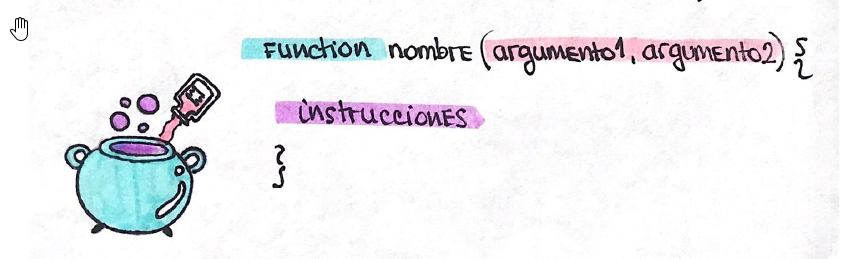 Function nombre (argumento1, argumento2) {
instrucciones
}